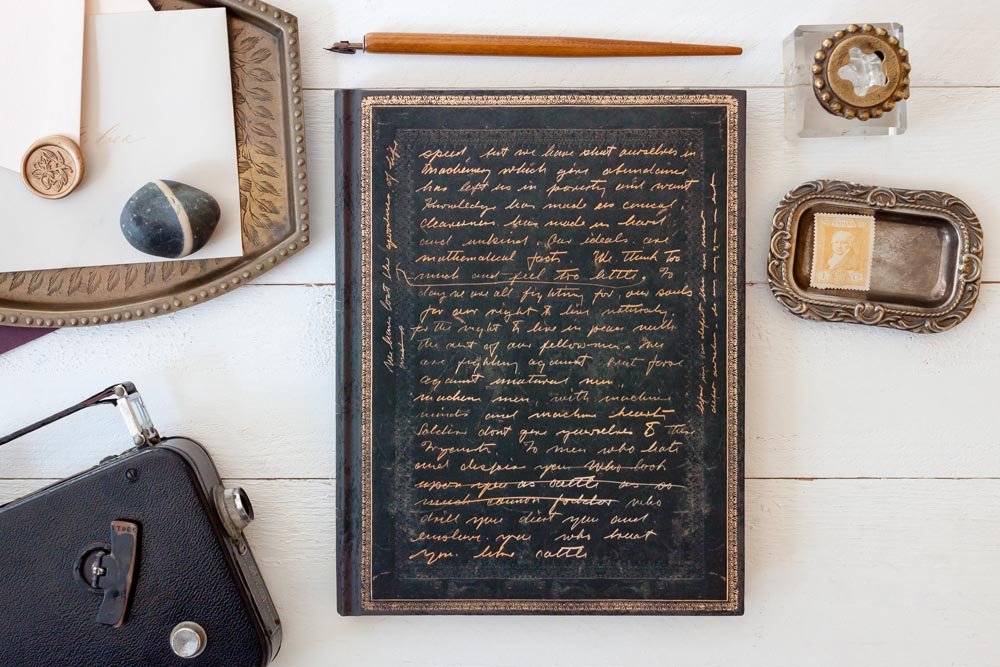 speed, but we have shut ourselves in
machinery which gives abundance
has left us in poverty and want
Knowledge has made us cynical
cleverness has made us hard
and unkind. Our ideals are
mathematical facts. We think too
much and feel too little. To
day we are all fighting for our souls
for our right to live naturally
for the right to live in peace with
the rest of our fellowmen. We
are fighting against
against unnatural men.
machine men, with machine
minds and machine hearts
Soldiers dont give yourselves to these
To men who hate
and despise you Who look
upon you as cattle as so
much cannon fodder who
drill you diet you and
enslave you who treat
you like cattle
We have lost the